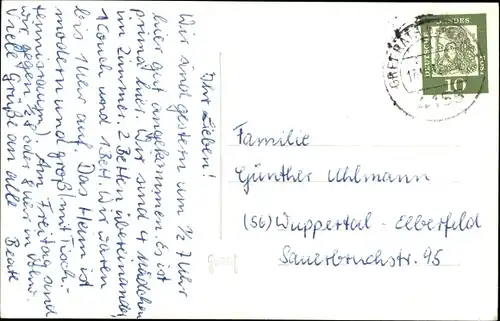 Ihr Lieben!
Wir sind gestern um 1/2 7 Uhr
hier gut angekommen. Es ist
prima hier. Wir sind 4 Mädchen
im Zimmer. 2 Betten übereinander,
1 Couch und 1 Bett. Wir waren
bis 1 Uhr auf. Das Heim ist
modern und groß (mit Tisch-
tennisraum). Am Freitag sind
wir gegen 7 oder 8 Uhr in
Viele Grüße an alle
Beate
Familie
Günther Uhlmann
(56) Wuppertal - Elberfeld
Sauerbruchstr. 95
DEUTSCHE BUNDESPOST
10